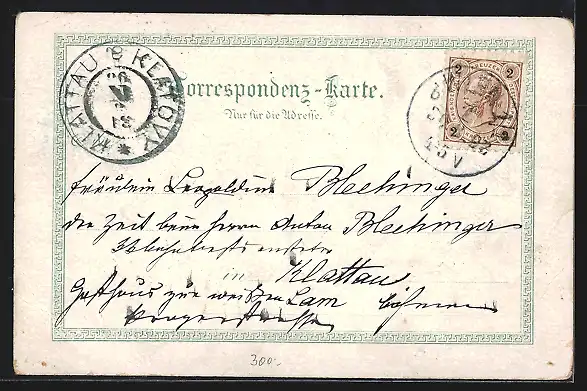 KLATTAU KLATOVY
Correspondenz-Karte.
Nur für die Adresse.
2 KREUZER 2
2 2
4-5 V
Fräulein Leopoldine Blechinger
der Zeit beim Herrn Anton Blechinger
in
Klattau
Gasthaus zur weißen Lam Böhmen
300.-